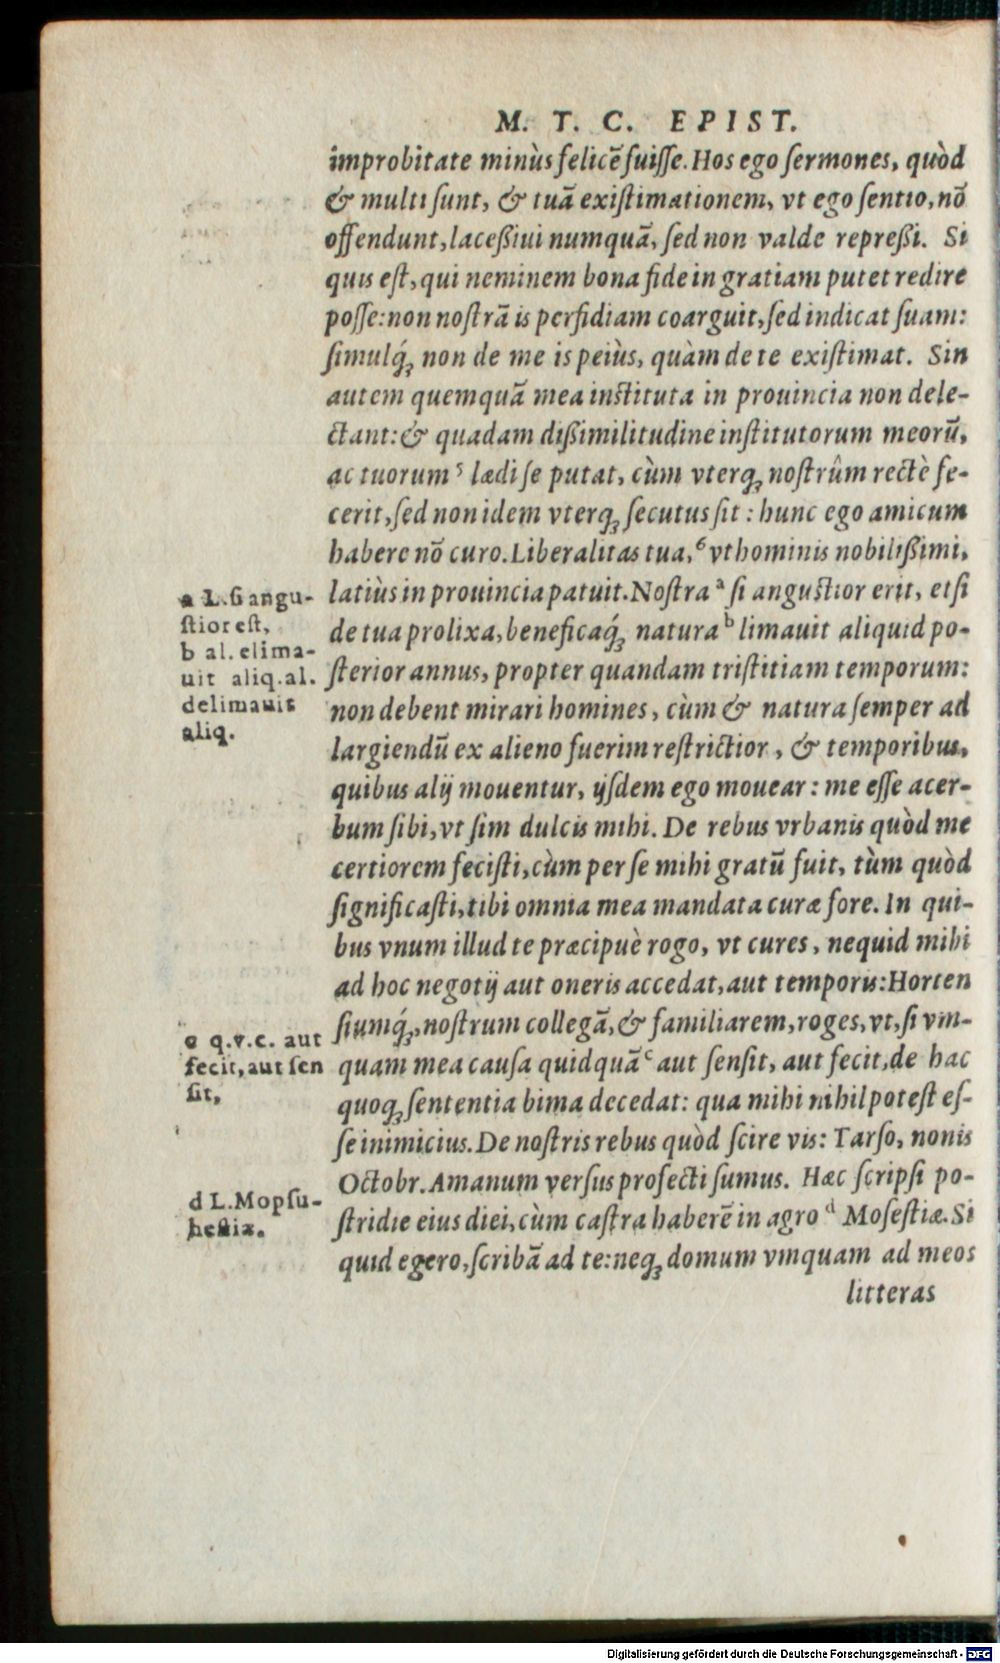 M. T. C. EPIST.
improbitate minùs felicē fuiſſe. Hos ego ſermones, quòd
& multi ſunt, & tuā exiſtimationem, vt ego ſentio, nō
offendunt, laceßiui numquā, ſed non valde repreßi. Si
quis eſt, qui neminem bona fide in gratiam putet redire
poſſe: non noſtrā is perfidiam coarguit, ſed indicat ſuam:
ſimulq́ꝫ non de me is peiùs, quàm de te exiſtimat. Sin
autem quemquā mea inſtituta in prouincia non dele-
ctant: & quadam dißimilitudine inſtitutorum meorū,
ac tuorum ⁵ lædi ſe putat, cùm vterqꝫ noſtrûm rectè fe-
cerit, ſed non idem vterqꝫ ſecutus ſit: hunc ego amicum
habere nō curo. Liberalitas tua, ⁶ vt hominis nobilißimi,
latiùs in prouincia patuit. Noſtra ᵃ ſi anguſtior erit, etſi
de tua prolixa, beneficaq́ꝫ natura ᵇ limauit aliquid po-
ſterior annus, propter quandam triſtitiam temporum:
non debent mirari homines, cùm & natura ſemper ad
largiendū ex alieno fuerim reſtrictior, & temporibus,
quibus alij mouentur, ijſdem ego mouear: me eſſe acer-
bum ſibi, vt ſim dulcis mihi. De rebus vrbanis quòd me
certiorem feciſti, cùm per ſe mihi gratū fuit, tùm quòd
ſignificaſti, tibi omnia mea mandata curæ fore. In qui-
bus vnum illud te præcipuè rogo, vt cures, nequid mihi
ad hoc negotij aut oneris accedat, aut temporis: Horten
ſiumq́ꝫ, noſtrum collegā, & familiarem, roges, vt, ſi vm-
quam mea cauſa quidquā ᶜ aut ſenſit, aut fecit, de hac
quoqꝫ ſententia bima decedat: qua mihi nihil poteſt eſ-
ſe inimicius. De noſtris rebus quòd ſcire vis: Tarſo, nonis
Octobr. Amanum verſus profecti ſumus. Hæc ſcripſi po-
ſtridie eius diei, cùm caſtra haberē in agro ᵈ Moſeſtiæ. Si
quid egero, ſcribā ad te: neqꝫ domum vmquam ad meos
litteras
a L. ſi angu-
ſtior eſt,
b al. elima-
uit aliq. al.
delimauit
aliq.
c q.v.c. aut
fecit, aut ſen
ſit,
d L. Mopſu-
heſtiæ.
Digitalisierung gefördert durch die Deutsche Forschungsgemeinschaft - DFG